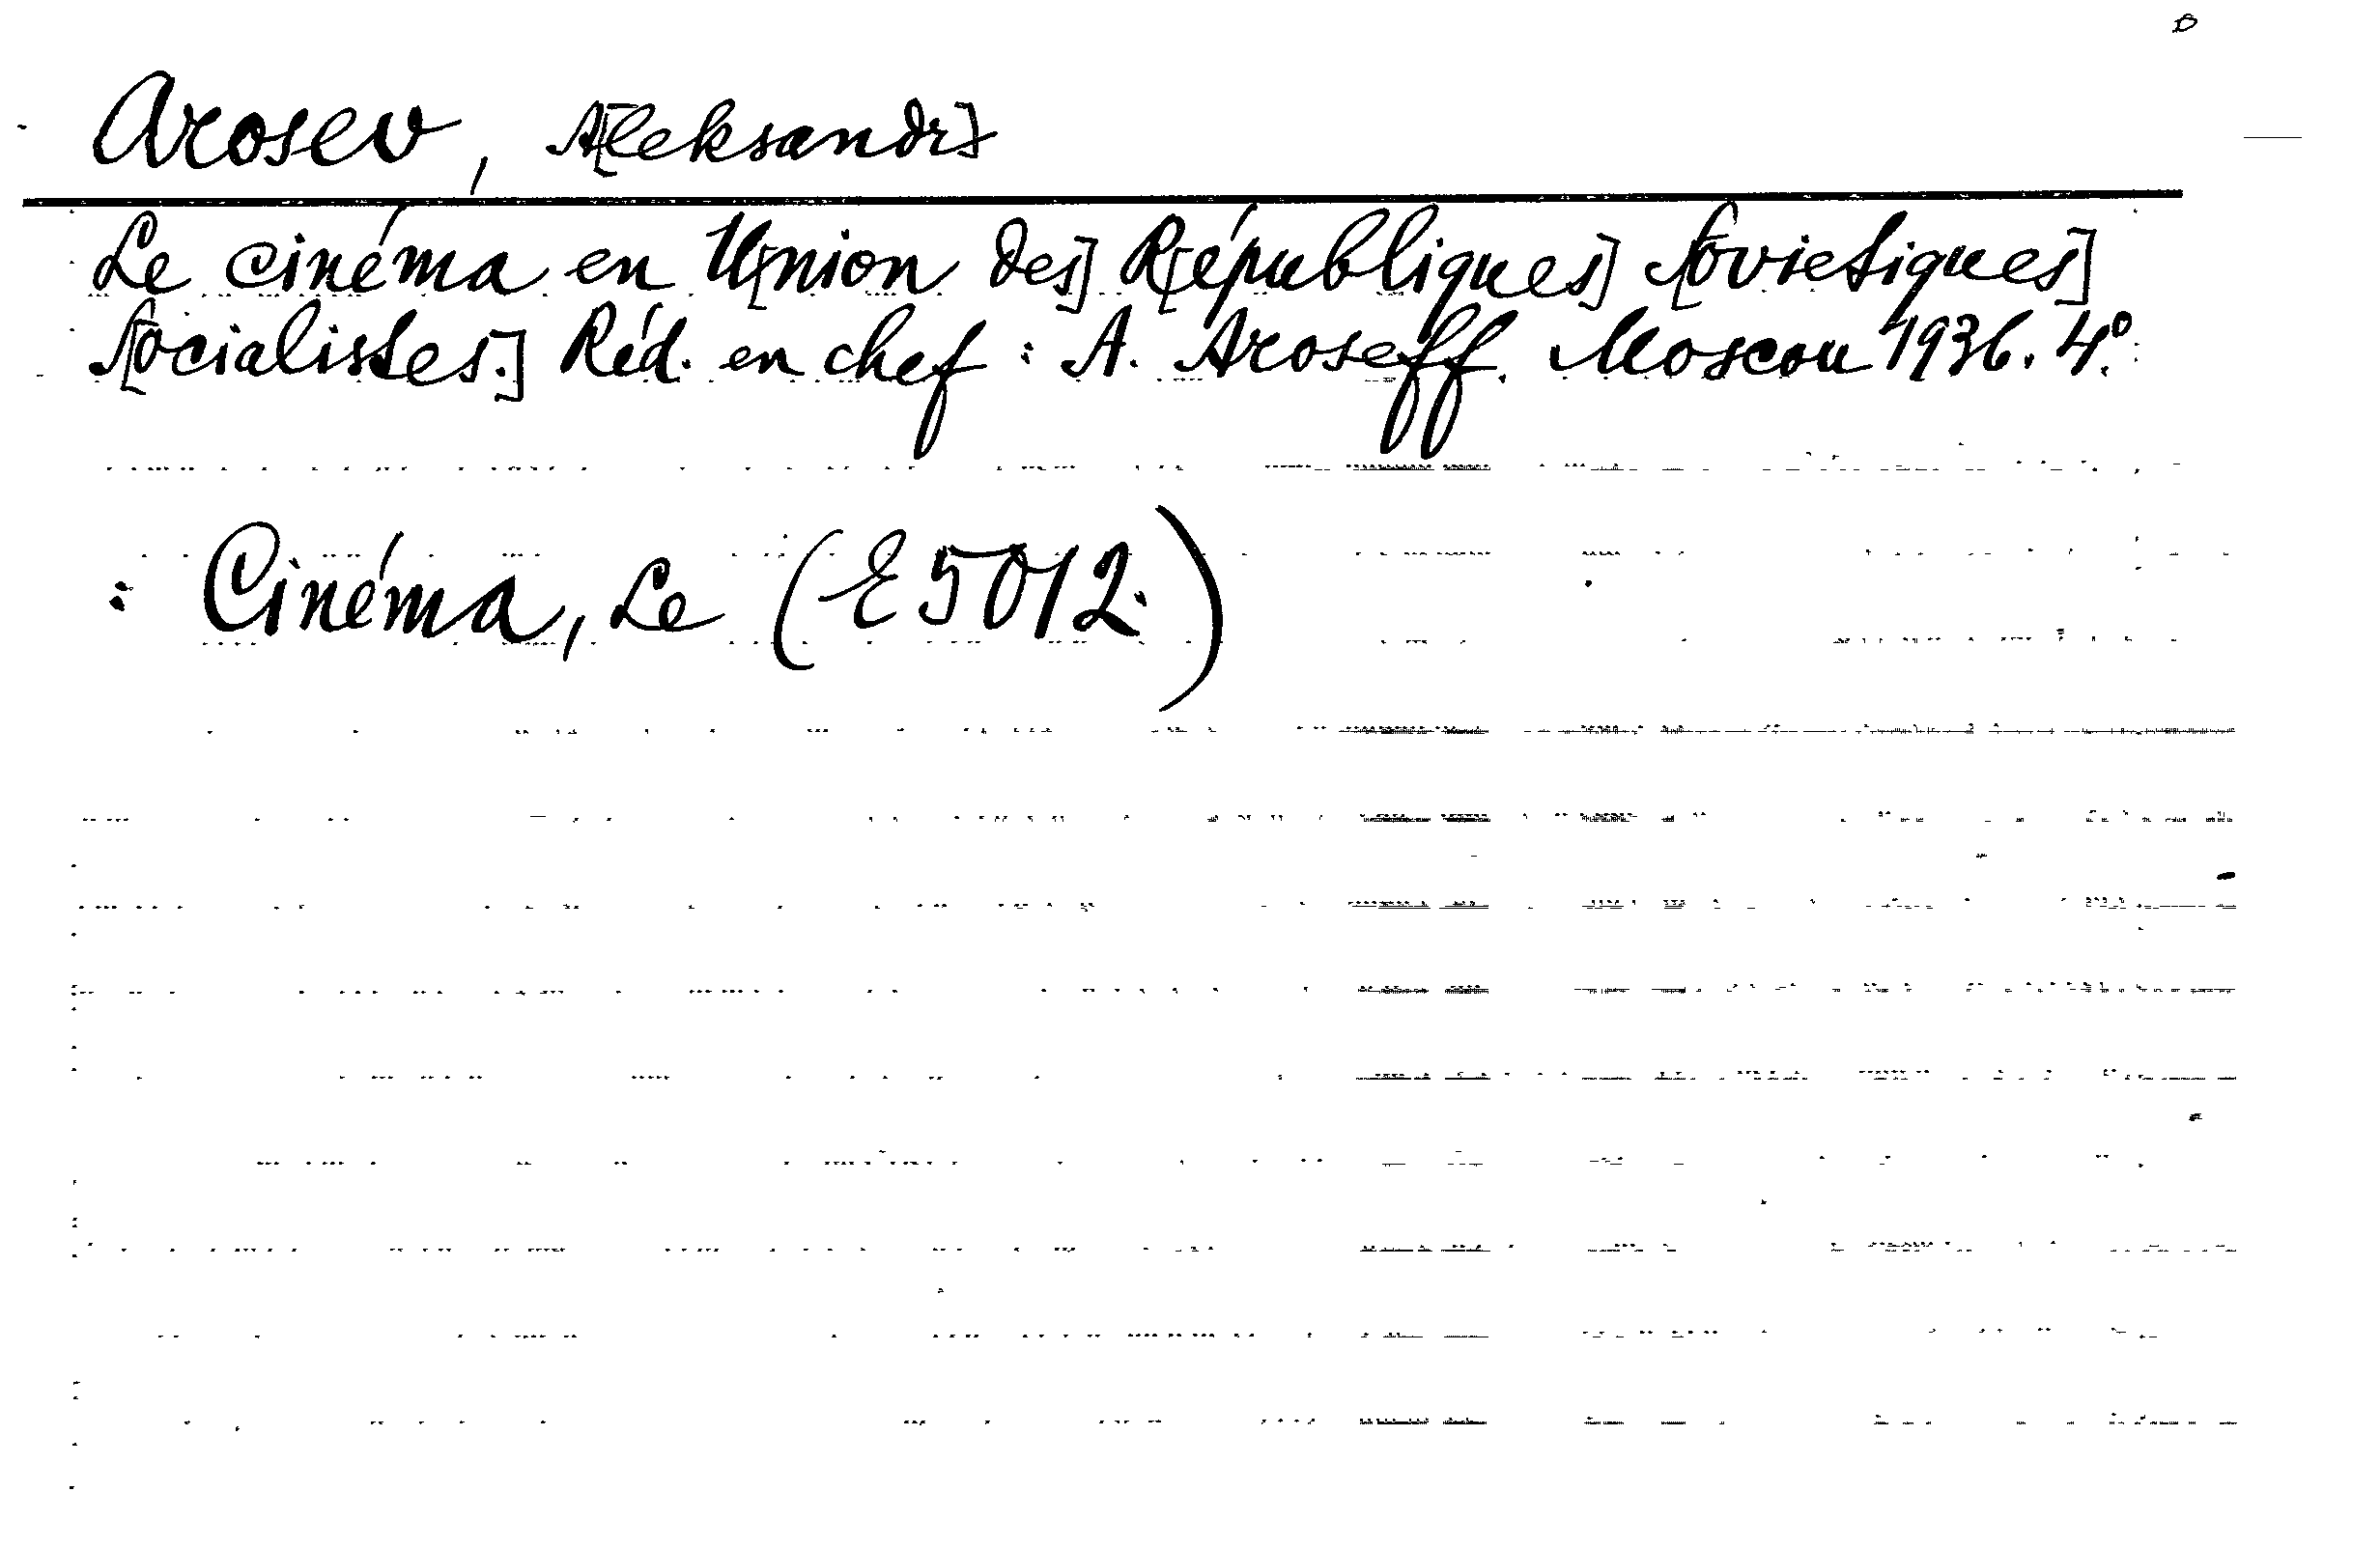 Arosev, A[leksandr]
Le cinéma en U[nion des] R[épubliques] S[ovietiques]
S[ocialistes.] Réd. en chef: A. Aroseff. Moscou 1936. 4°.
: Cinéma, Le (E 5012.)